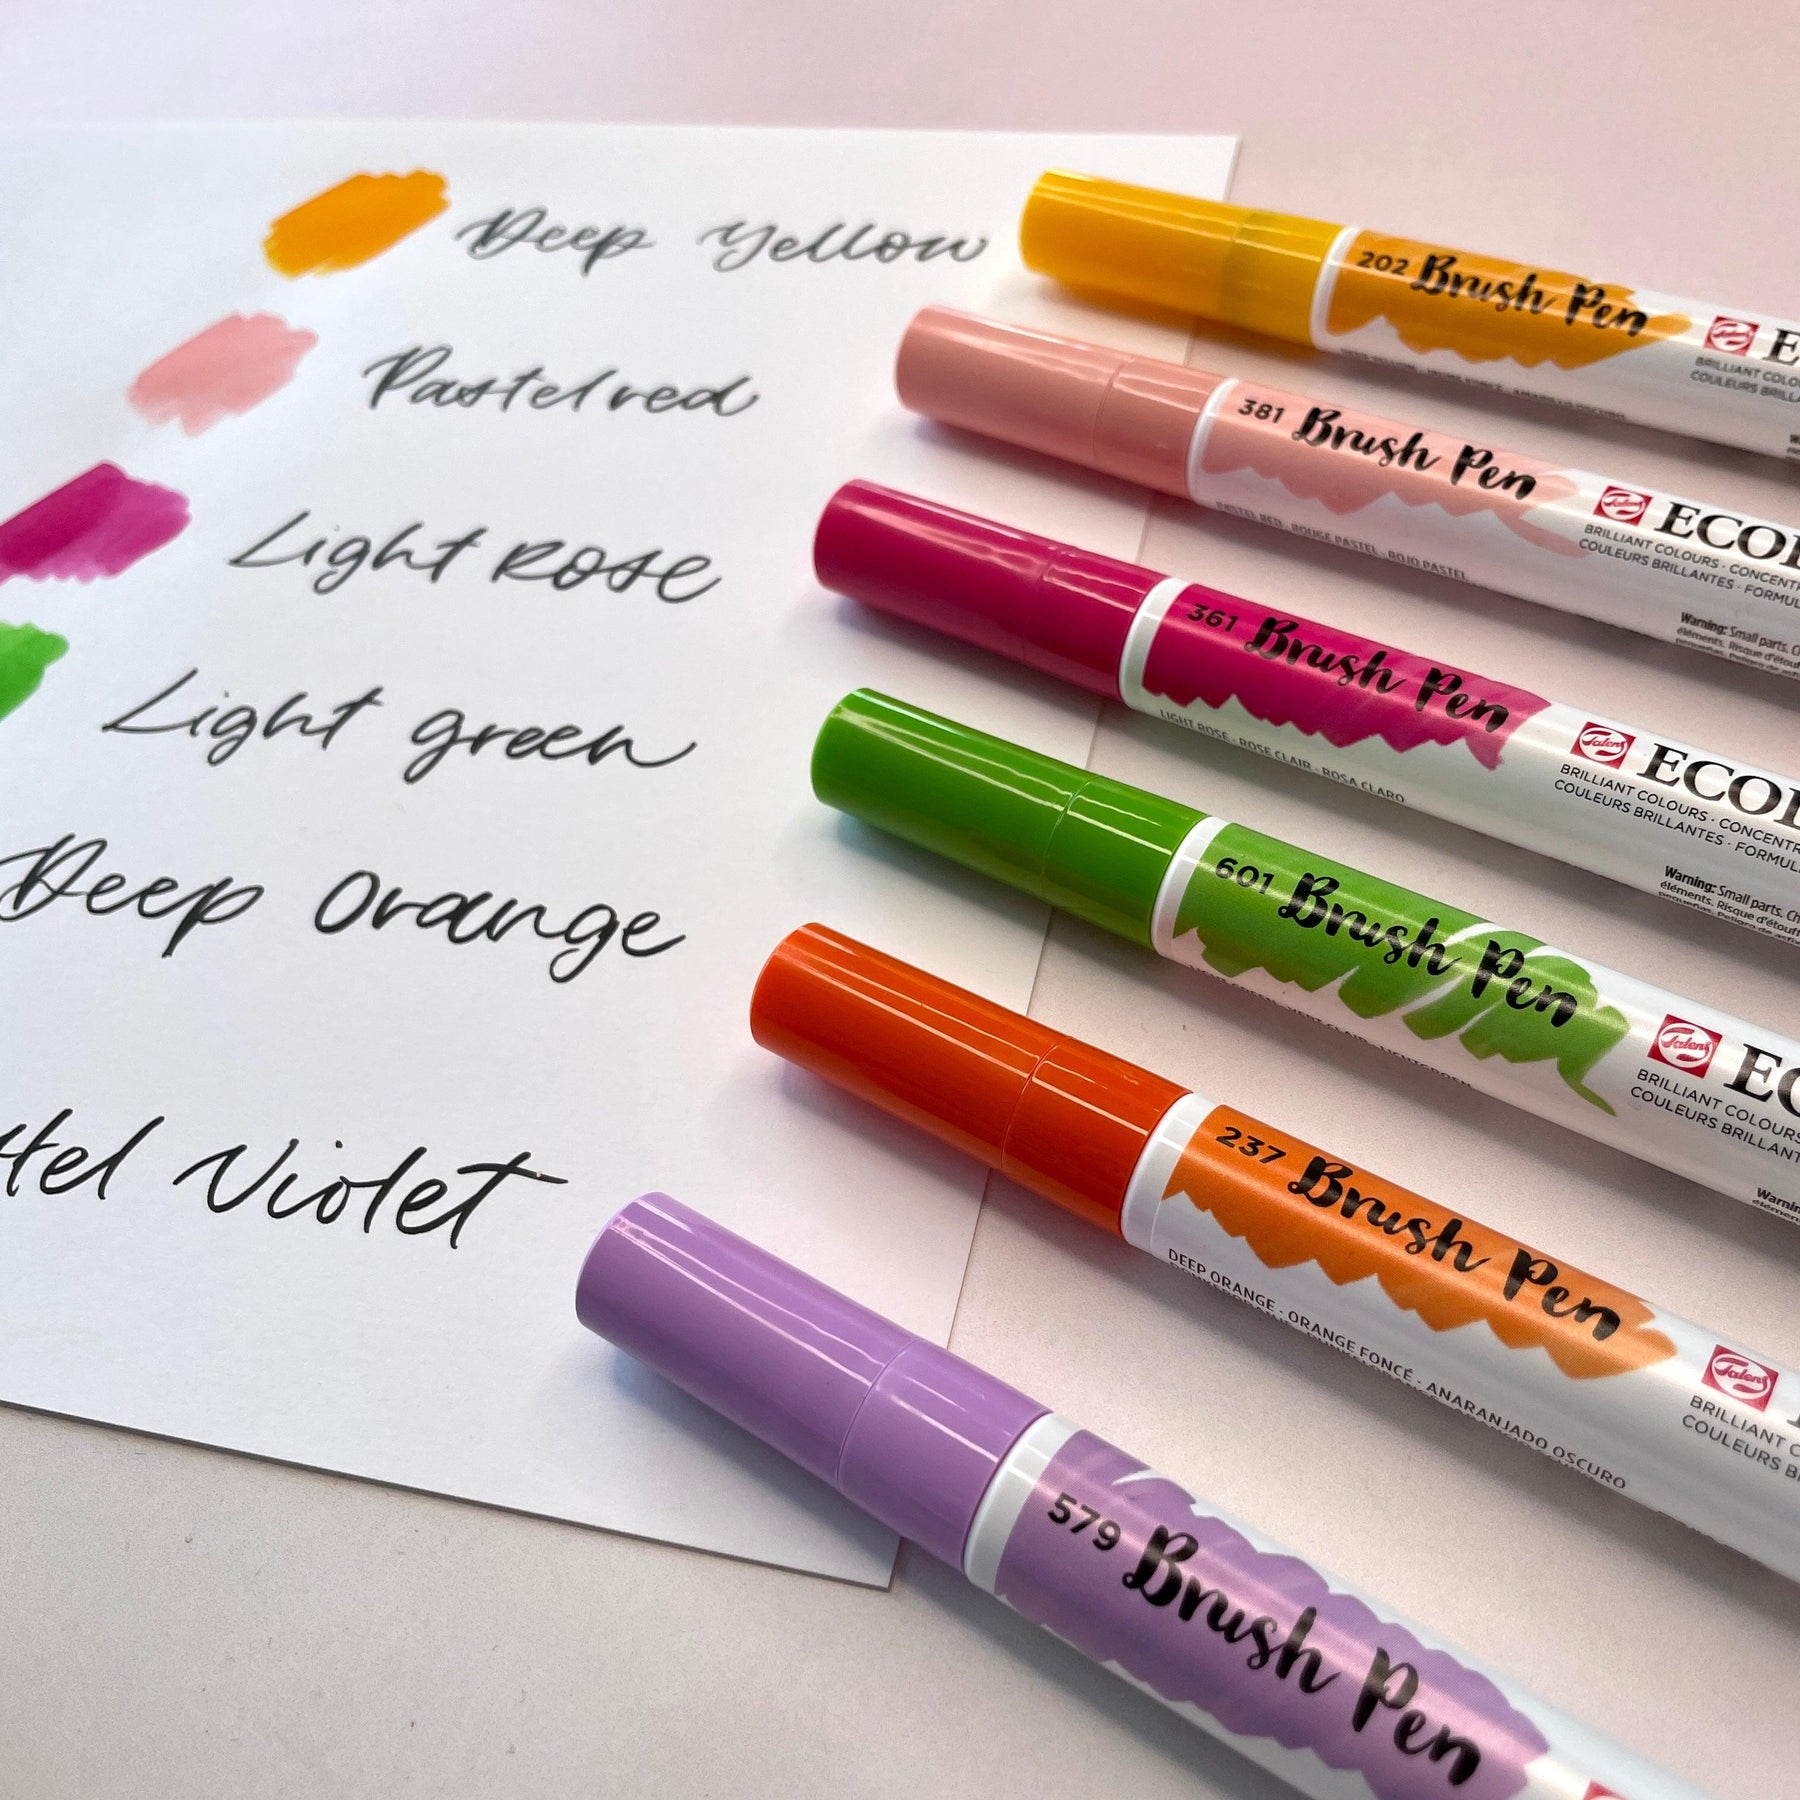 Deep Yellow
Pastel red
Light Rose
Light green
Deep Orange
Violet
202 Brush Pen
BRILLIANT
COULEURS
381 Brush Pen
PASTEL RED · ROUGE PASTEL · ROJO PASTEL
Talens
BRILLIANT COLOURS ·
COULEURS BRILLANTES ·
Warning: Small parts.
361 Brush Pen
LIGHT ROSE · ROSE CLAIR · ROSA CLARO
Talens
BRILLIANT COLOURS ·
COULEURS BRILLANTES ·
Warning: Small parts.
éléments. Risque
601 Brush Pen
Talens
BRILLIANT COLOURS
COULEURS
237 Brush Pen
DEEP ORANGE · ORANGE FONCÉ · ANARANJADO OSCURO
Talens
BRILLIANT
COULEURS
579 Brush Pen